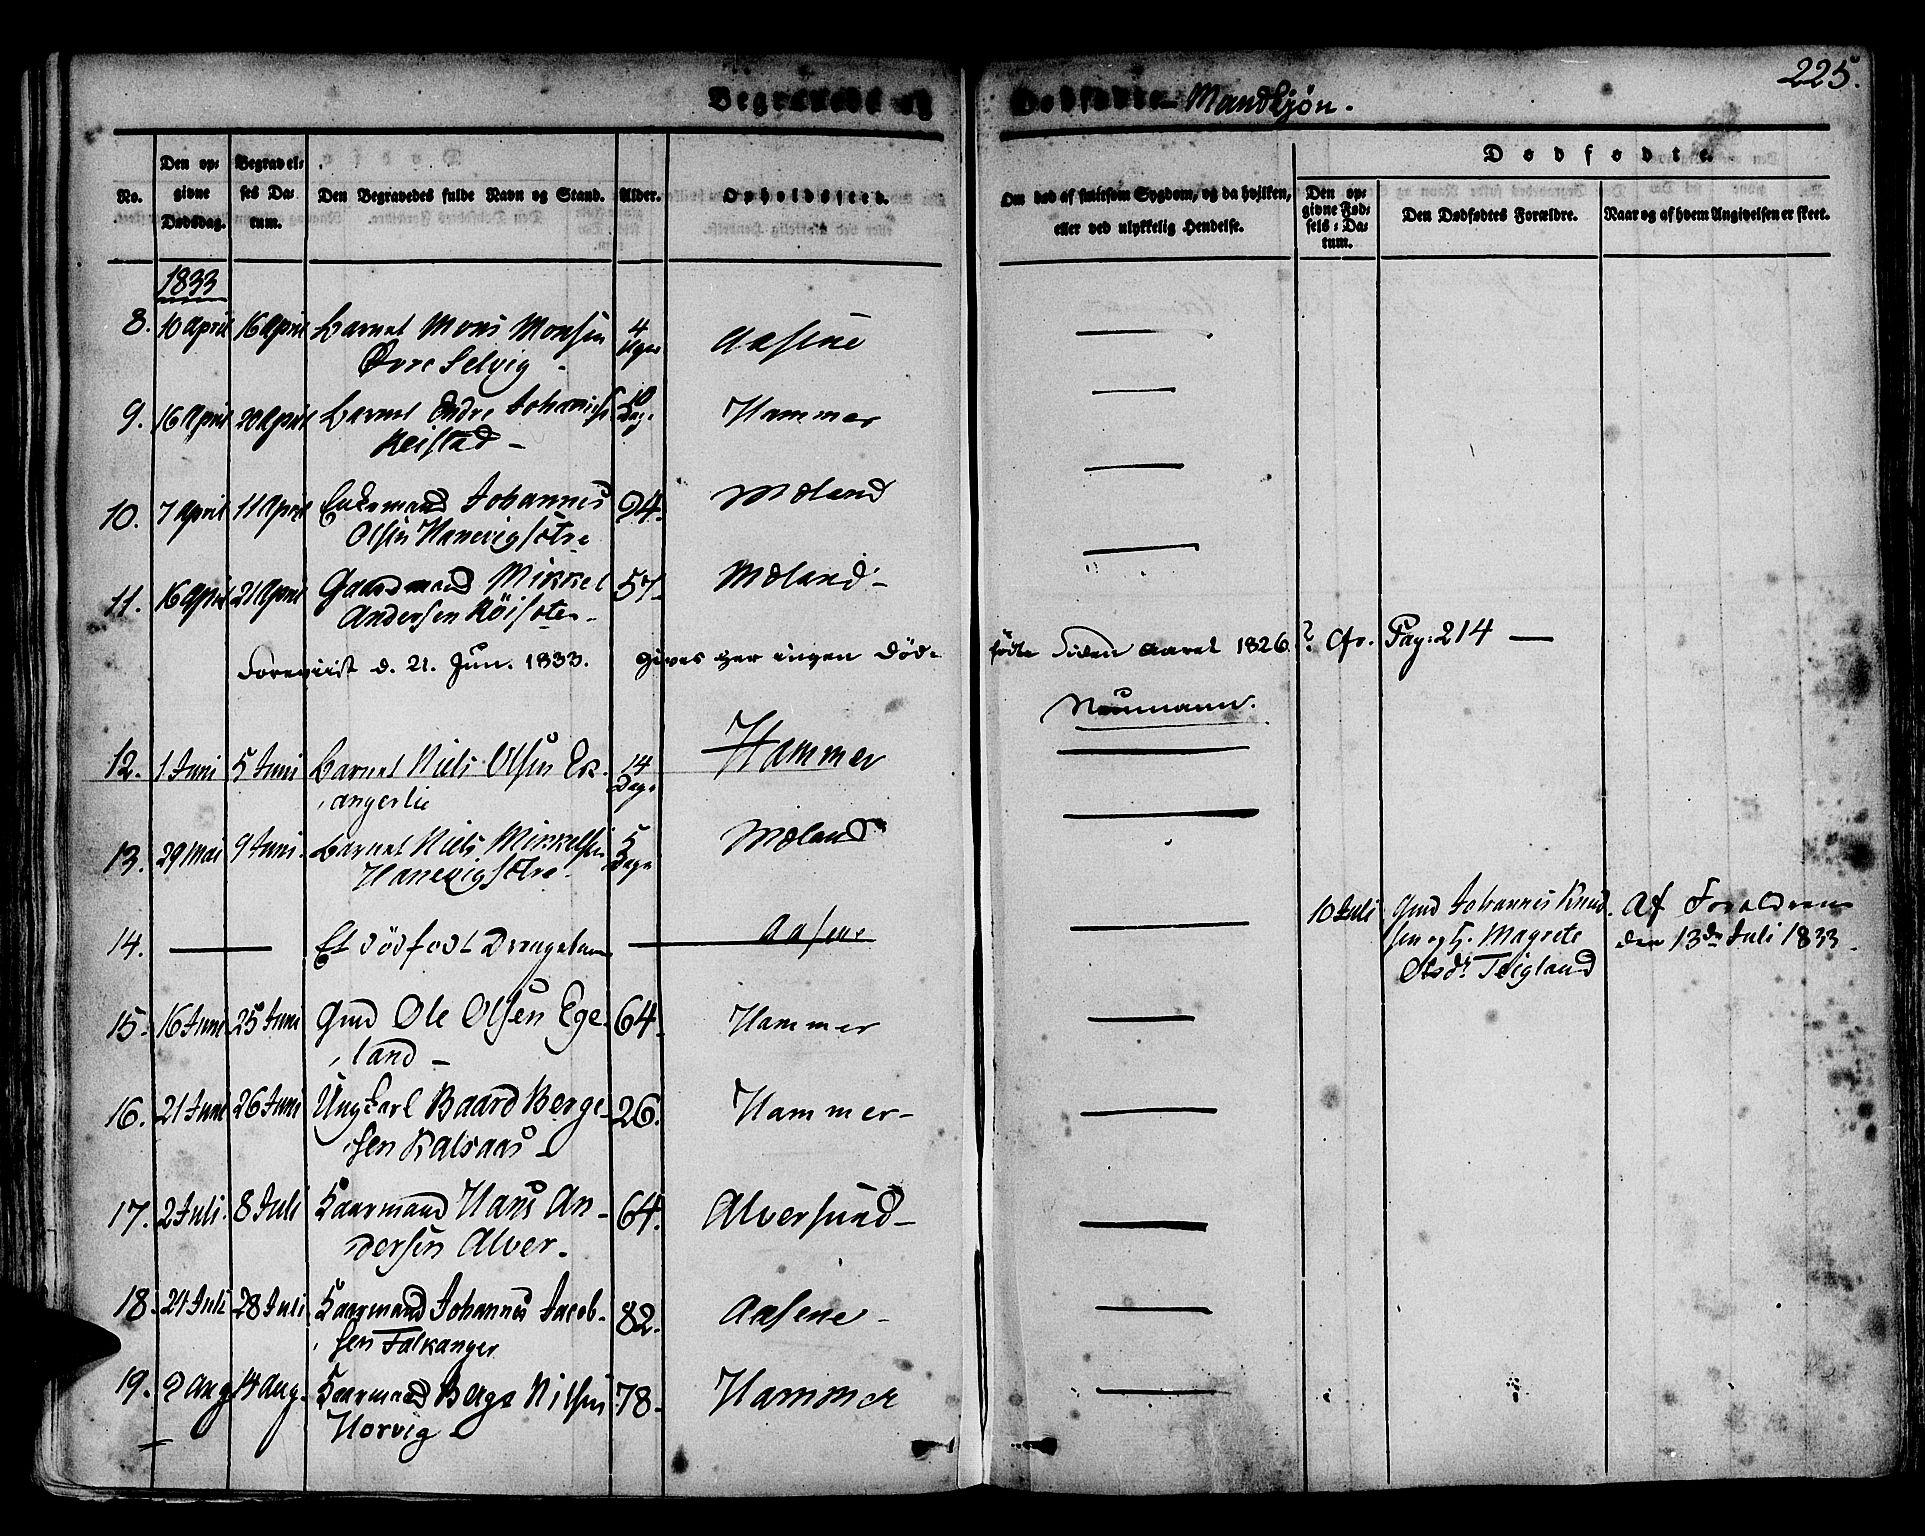 225.
Begravede og Dødfødte. Mandkjøn.
No.
Den opgivne Dødsdag.
Begravelses Datum.
Den Begravedes fulde Navn og Stand.
Alder.
Opholdssted.
Om død af smitsom Sygdom, og da hvilken, eller ved ulykkelig Hendelse.
Dødfødte.
Den opgivne Fødsels-Datum.
Den Dødfødtes Forældre.
Naar og af hvem Angivelsen er skeet.
1833
8. 10 April 16 April Barnet Mons Monsen 4 Uger Aasene —
Øvre Selvig
9. 16 April 20 April Barnet Endre Johannes 10 Dag. Hammer —
Reistad –
10. 7 April 11 April Enkemand Johannes 94. Mæland —
Olsen Hanevigsøtre
11. 16 April 21 April Gaardmand Mikkel 57. Mæland – —
Andersen Röisøter.
Foreviist d. 21. Jun. 1833. Gives her ingen Död-
födte siden Aaret 1826? Cfr. Pag: 214 —
Neumann.
12. 1 Juni 5 Juni Barnet Niels Olsen Ek- 14 Dage Hammer —
angerlie
13. 29 Mai 9 Juni. Barnet Niels Mikkelsen 5 Dage Mæland —
Hanevigsøtre
14. — — Et dödfødt Drengebarn — Aasene — 10 Juli Gmd Johannes Knud- Af Forældrene
sen og H. Magrete den 13de Juli 1833.
Olsdr Teigland
15. 16 Juni 25 Juni Gmd Ole Olsen Ege- 64. Hammer —
land –
16. 21 Juni 26 Juni Ungkarl Baard Berge- 26. Hammer – —
sen Kalsaas –
17. 2 Juli. 8 Juli Kaarmand Hans An- 64. Alversund – —
dersen Alver.
18. 21 Juli 28 Juli Kaarmand Johannes Jacob- 82. Aasene – —
sen Falkanger
19. 9 Aug 14 Aug. Kaarmand Berge Nilsen 78. Hammer —
Horvig